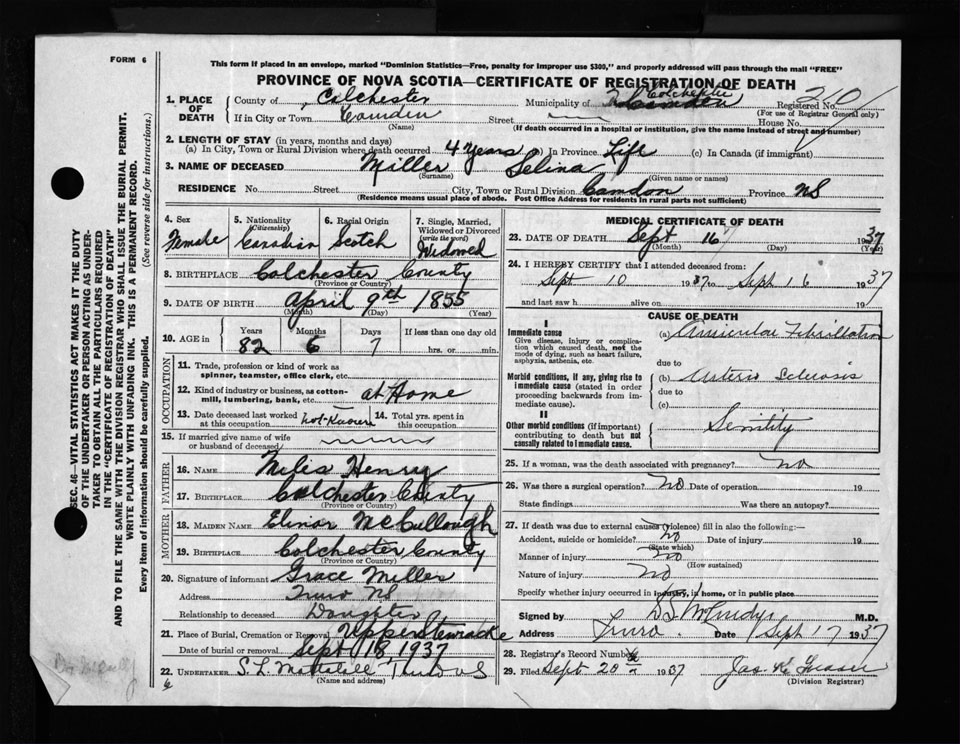 FORM 6
This form if placed in an envelope, marked "Dominion Statistics—Free, penalty for improper use $300," and properly addressed will pass through the mail "FREE"
PROVINCE OF NOVA SCOTIA—CERTIFICATE OF REGISTRATION OF DEATH
1. PLACE OF DEATH
County of Colchester Municipality of Colchester Registered No. 210
(For use of Registrar General only)
If in City or Town Camden Street House No.
(Name) (If death occurred in a hospital or institution, give the name instead of street and number)
2. LENGTH OF STAY (in years, months and days)
(a) In City, Town or Rural Division where death occurred 4 years (b) In Province Life (c) In Canada (if immigrant)
3. NAME OF DECEASED Miller Selina
(Surname) (Given name or names)
RESIDENCE No. Street City, Town or Rural Division Camdon Province NS
(Residence means usual place of abode. Post Office Address for residents in rural parts not sufficient)
4. Sex Female
5. Nationality (Citizenship) Canadian
6. Racial Origin Scotch
7. Single, Married, Widowed or Divorced (write the word) Widowed
8. BIRTHPLACE Colchester County
(Province or Country)
9. DATE OF BIRTH April 9th 1855
(Month) (Day) (Year)
10. AGE in Years Months Days If less than one day old
82 6 7 hrs. or min.
OCCUPATION
11. Trade, profession or kind of work as spinner, teamster, office clerk, etc.
12. Kind of industry or business, as cotton-mill, lumbering, bank, etc. at Home
13. Date deceased last worked at this occupation not-Known
14. Total yrs. spent in this occupation
15. If married give name of wife or husband of deceased
FATHER
16. NAME Miles Henry
17. BIRTHPLACE Colchester County
(Province or Country)
MOTHER
18. MAIDEN NAME Elinor McCullough
19. BIRTHPLACE Colchester County
(Province or Country)
20. Signature of informant Grace Miller
Address Truro NS
Relationship to deceased Daughter
21. Place of Burial, Cremation or Removal Upper Stewiacke
Date of burial or removal Sept 18 1937
22. UNDERTAKER S.L.
(Name and address)
MEDICAL CERTIFICATE OF DEATH
23. DATE OF DEATH Sept 16 1937
(Month) (Day) (Year)
24. I HEREBY CERTIFY that I attended deceased from:
Sept 10 1937 to Sept 16 1937
and last saw h alive on 19
CAUSE OF DEATH
I
Immediate cause
Give disease, injury or complication which caused death, not the mode of dying, such as heart failure, asphyxia, asthenia, etc.
(a) Auricular Fibrillation
due to
Morbid conditions, if any, giving rise to immediate cause (stated in order proceeding backwards from immediate cause).
(b) Arterio Sclerosis
due to
(c)
II
Other morbid conditions (if important) contributing to death but not causally related to immediate cause.
Senility
25. If a woman, was the death associated with pregnancy? No
26. Was there a surgical operation? No Date of operation 19
State findings Was there an autopsy?
27. If death was due to external causes (violence) fill in also the following:—
Accident, suicide or homicide? No Date of injury 19
(State which)
Manner of injury No
(How sustained)
Nature of injury No
Specify whether injury occurred in industry, in home, or in public place
Signed by M.D.
Address Truro. Date Sept 17 1937
28. Registrar's Record Number
29. Filed Sept 20 1937 Jas K Fraser
(Division Registrar)
SEC. 46—VITAL STATISTICS ACT MAKES IT THE DUTY
OF THE UNDERTAKER OR PERSON ACTING AS UNDER-
TAKER TO OBTAIN ALL THE PARTICULARS REQUIRED
IN THE "CERTIFICATE OF REGISTRATION OF DEATH"
AND TO FILE THE SAME WITH THE DIVISION REGISTRAR WHO SHALL ISSUE THE BURIAL PERMIT.
WRITE PLAINLY WITH UNFADING INK. THIS IS A PERMANENT RECORD.
Every item of information should be carefully supplied. (See reverse side for instructions.)